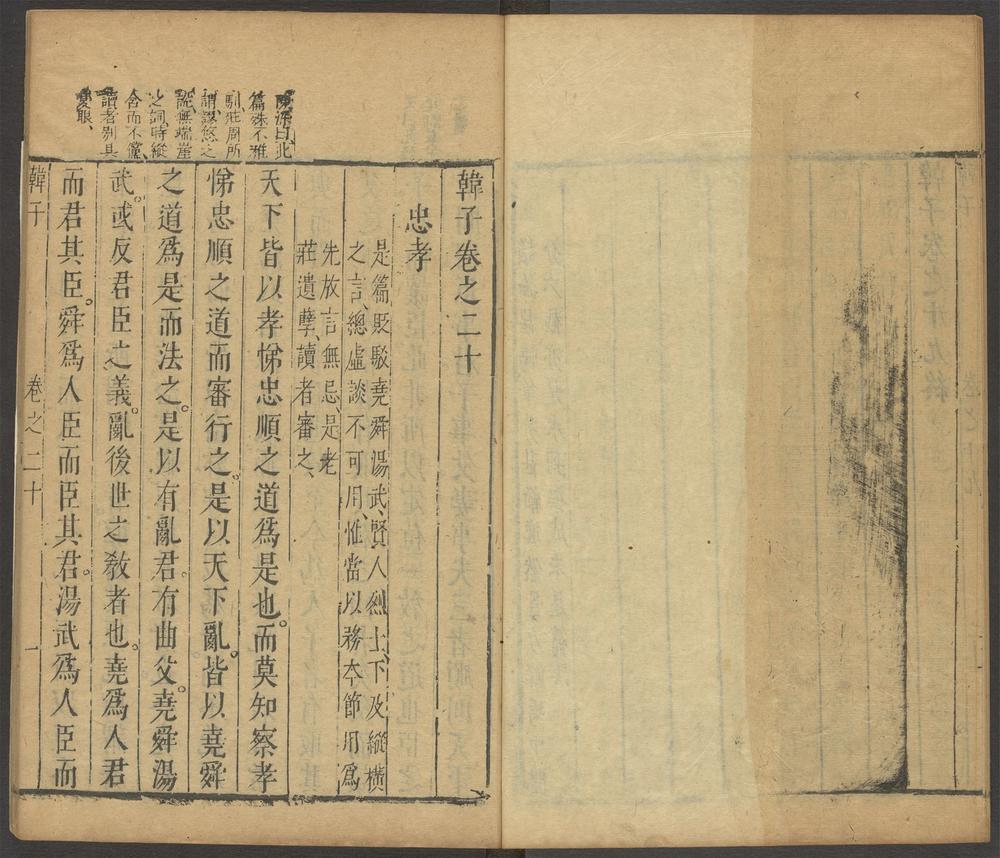 陳深曰此
篇殊不雅
馴莊周所
謂謬悠之
說無端崖
之詞時縱
含而不儻
讀者別具
隻眼、
韓子卷之二十
忠孝
是篇貶駁堯舜湯武、賢人烈士、下及縱橫
之言、總虛談不可用、惟當以務本節用爲
先放言無忌、是老
莊遺孽、讀者審之、
天下皆以孝悌忠順之道爲是也。而莫知察孝
悌忠順之道而審行之。是以天下亂。皆以堯舜
之道爲是而法之。是以有亂君。有曲父。堯舜湯
武。或反君臣之義。亂後世之敎者也。堯爲人君
而君其臣。舜爲人臣而臣其君。湯武爲人臣而
韓子 卷之二十 一